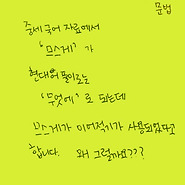 문법
중세국어 자료에서
'므스게' 가
현대어 풀이로는
'무엇에' 로 되는데
므스게가 이어적기가 사용되었다고
합니다. 왜 그럴까요???